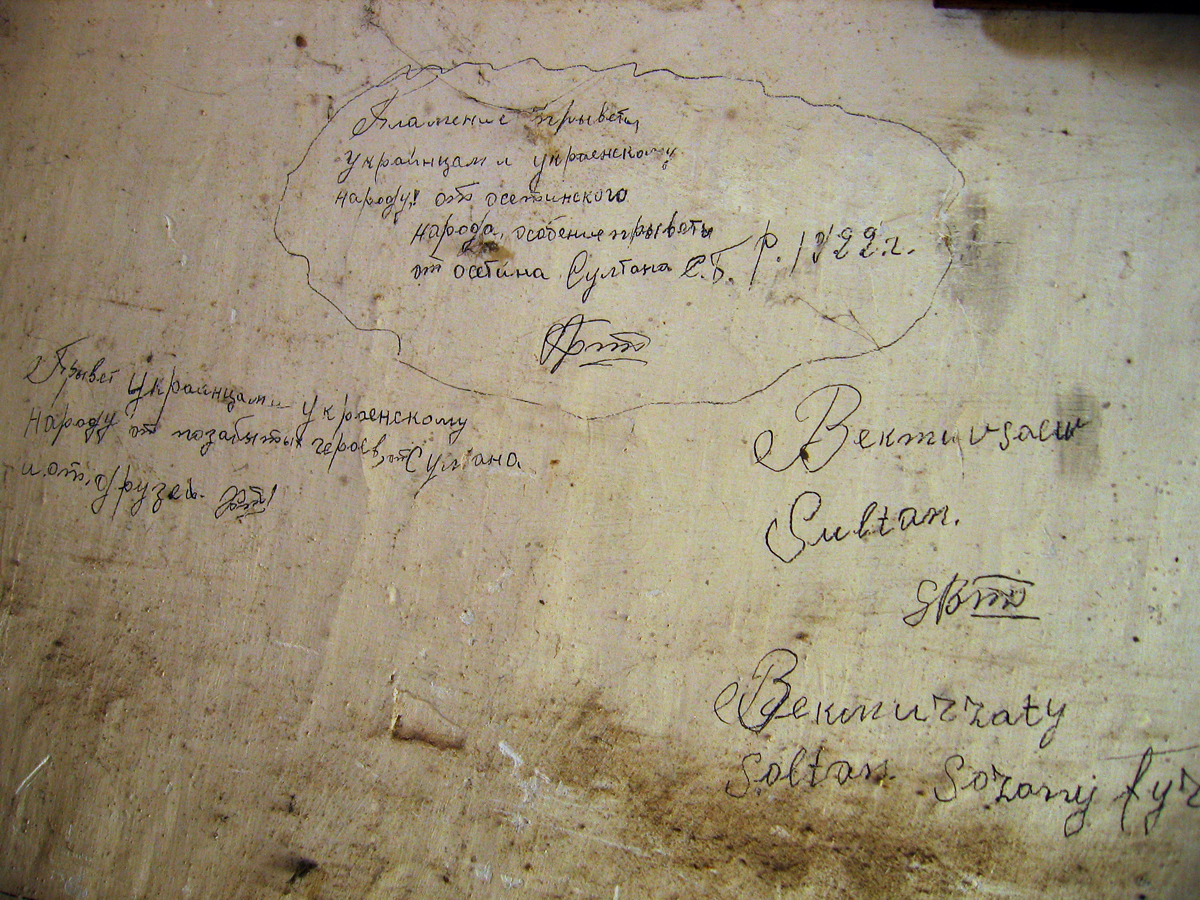 Пламение прывет,
украинцам и украенскому
народу! от осетинского
народа, особение прывет
от осетина Султана С.Б. р. 1922 г.
Прывет украинцам и украенскому
народу от позабытых героев, от Султана
и от друзей.
Sultan.
Bekmurzaty
Soltan Sozaryj fyr